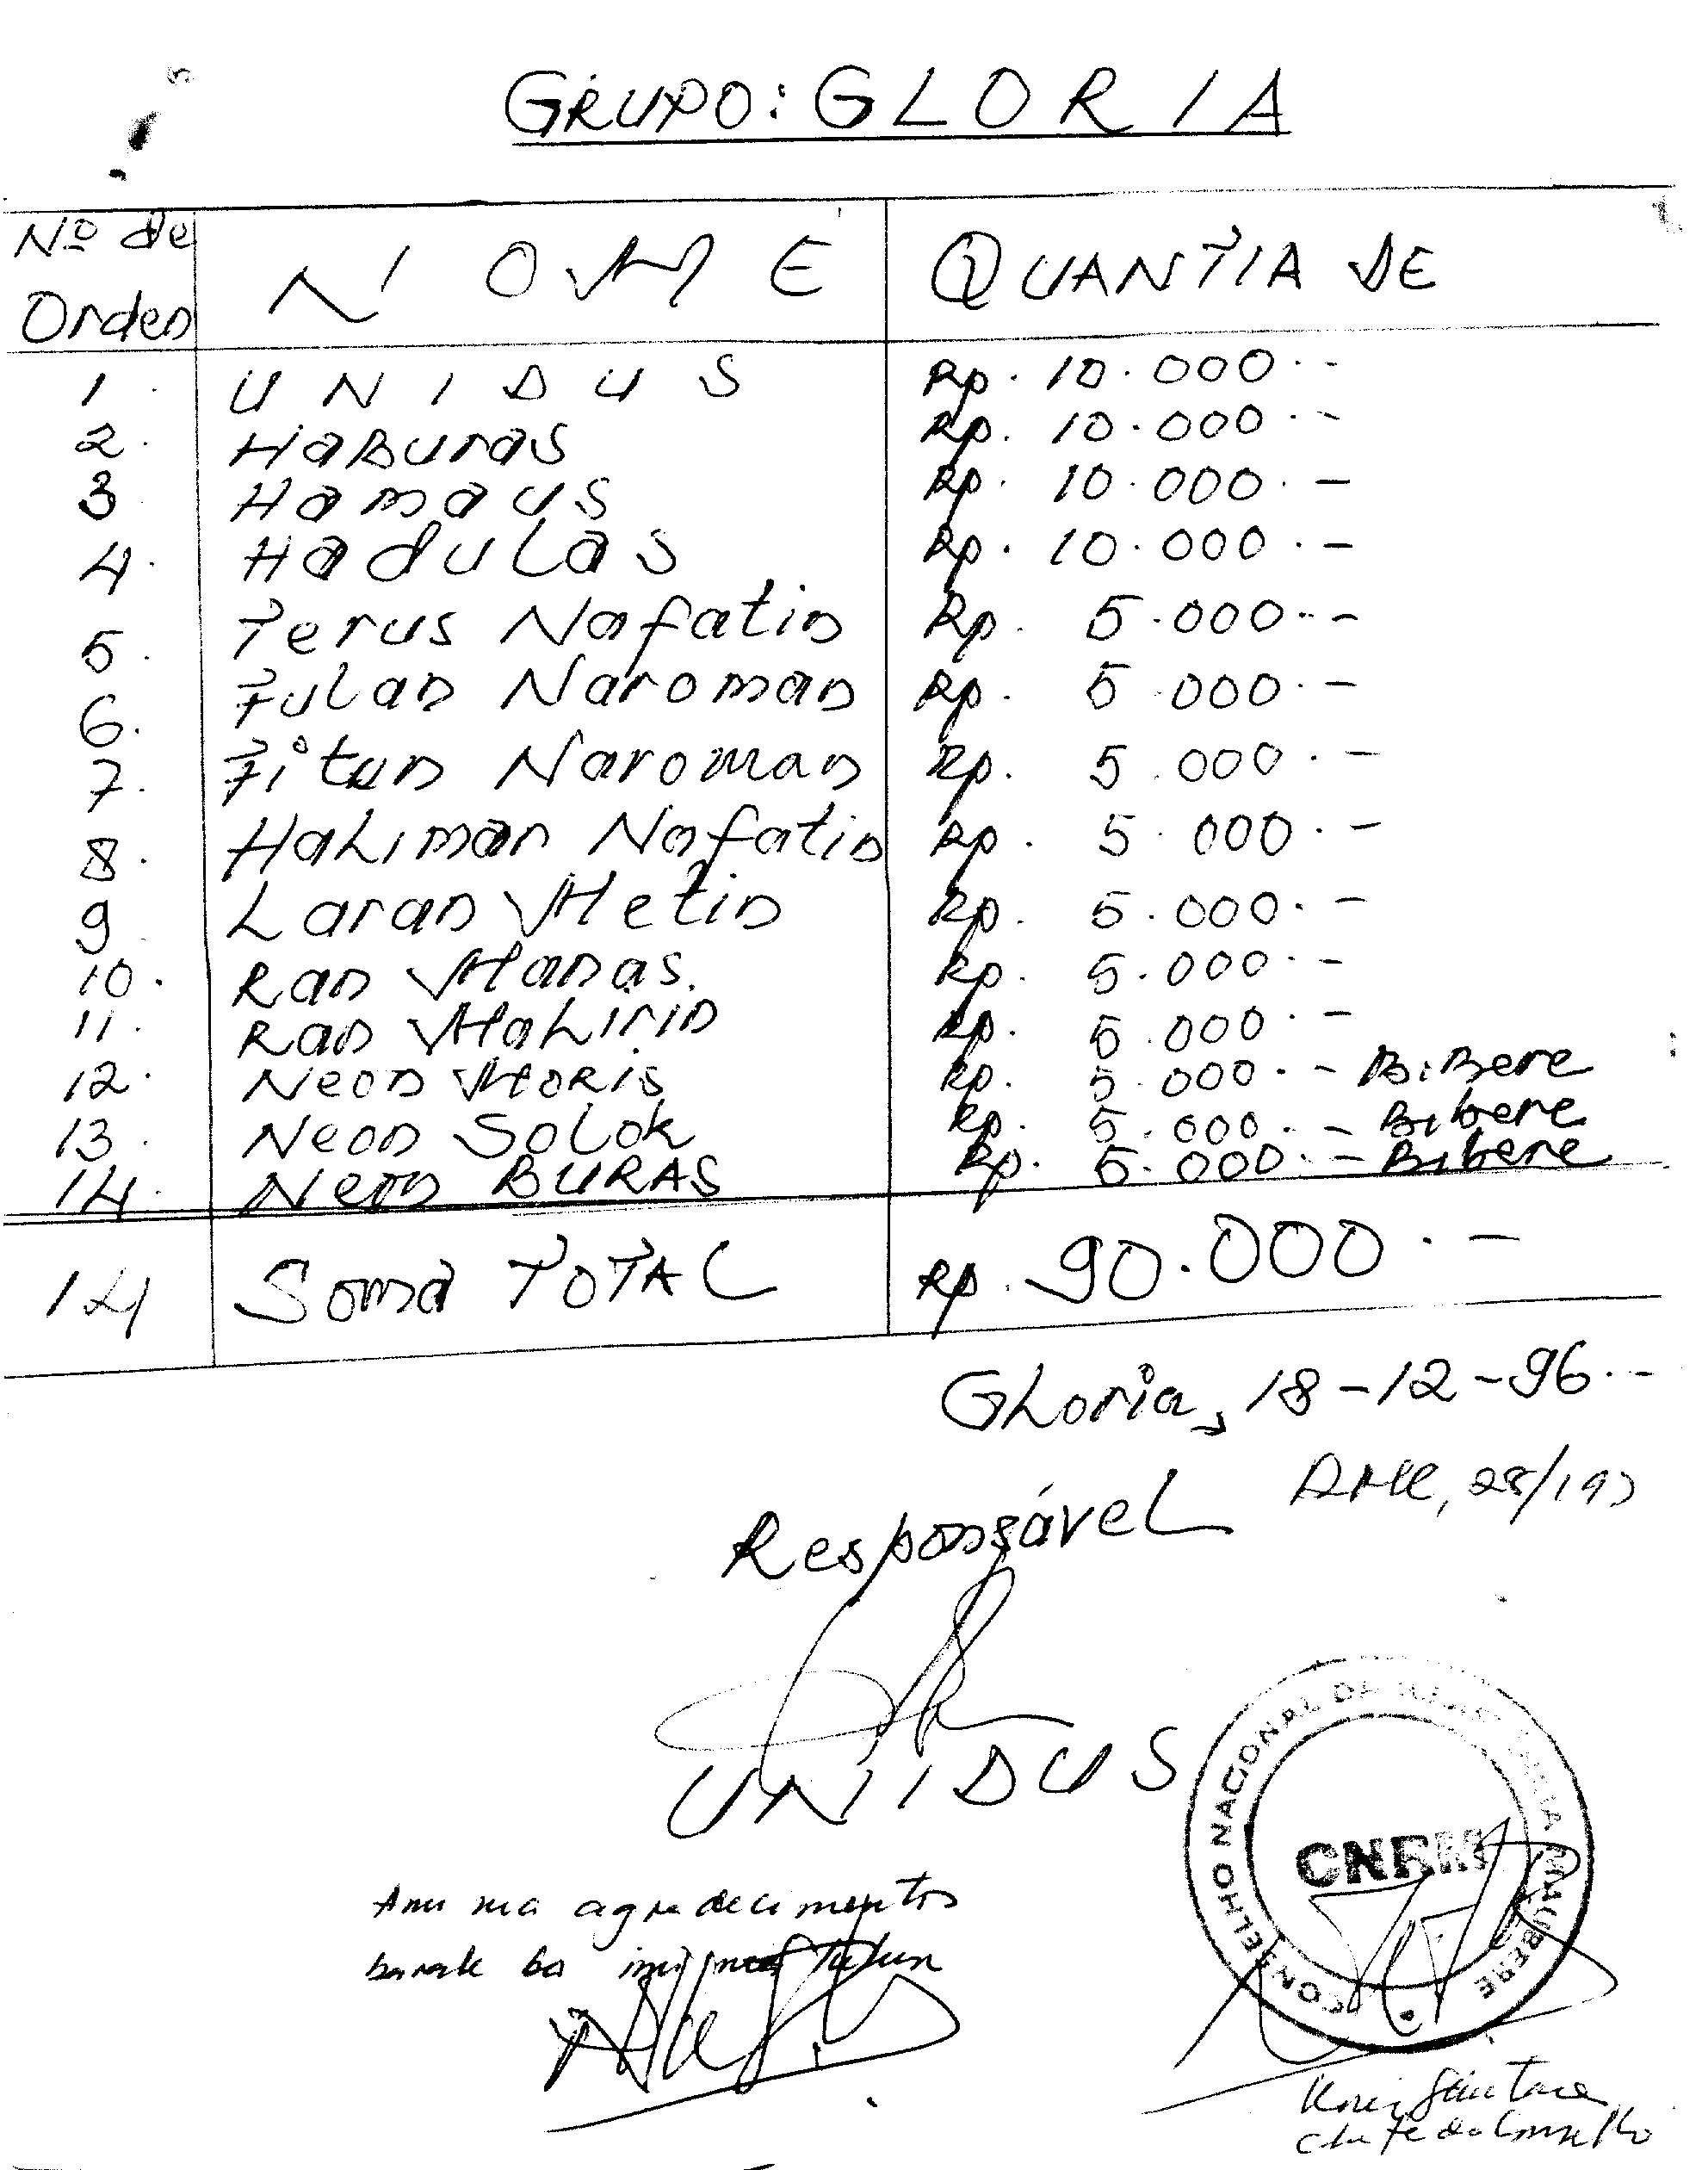 GRUPO: GLORIA
Nº de Orden NOME QUANTIA DE
1. UNIDUS Rp. 10.000.-
2. HABURAS Rp. 10.000.-
3. HAMAUS Rp. 10.000.-
4. HADULAS Rp. 10.000.-
5. Terus Nafatin Rp. 5.000.-
6. Fulan Naroman Rp. 5.000.-
7. Fitun Naroman Rp. 5.000.-
8. HaLiman Nafatin Rp. 5.000.-
9. Laran Metin Rp. 5.000.-
10. Ran Manas. Rp. 5.000.-
11. Ran MaLirin Rp. 5.000.-
12. Neon MORIS Rp. 5.000.- Bibere
13. Neon SoLok Rp. 5.000.- Bibere
14. Neon BURAS Rp. 5.000.- Bibere
14 Soma TOTAL Rp. 90.000.-
GLoria, 18-12-96.-
Responsável
UNIDUS
CONSELHO NACIONAL DA RESISTÊNCIA MAUBERE
CNRM
agradecimentos
barak ba
Chefe do Conselho